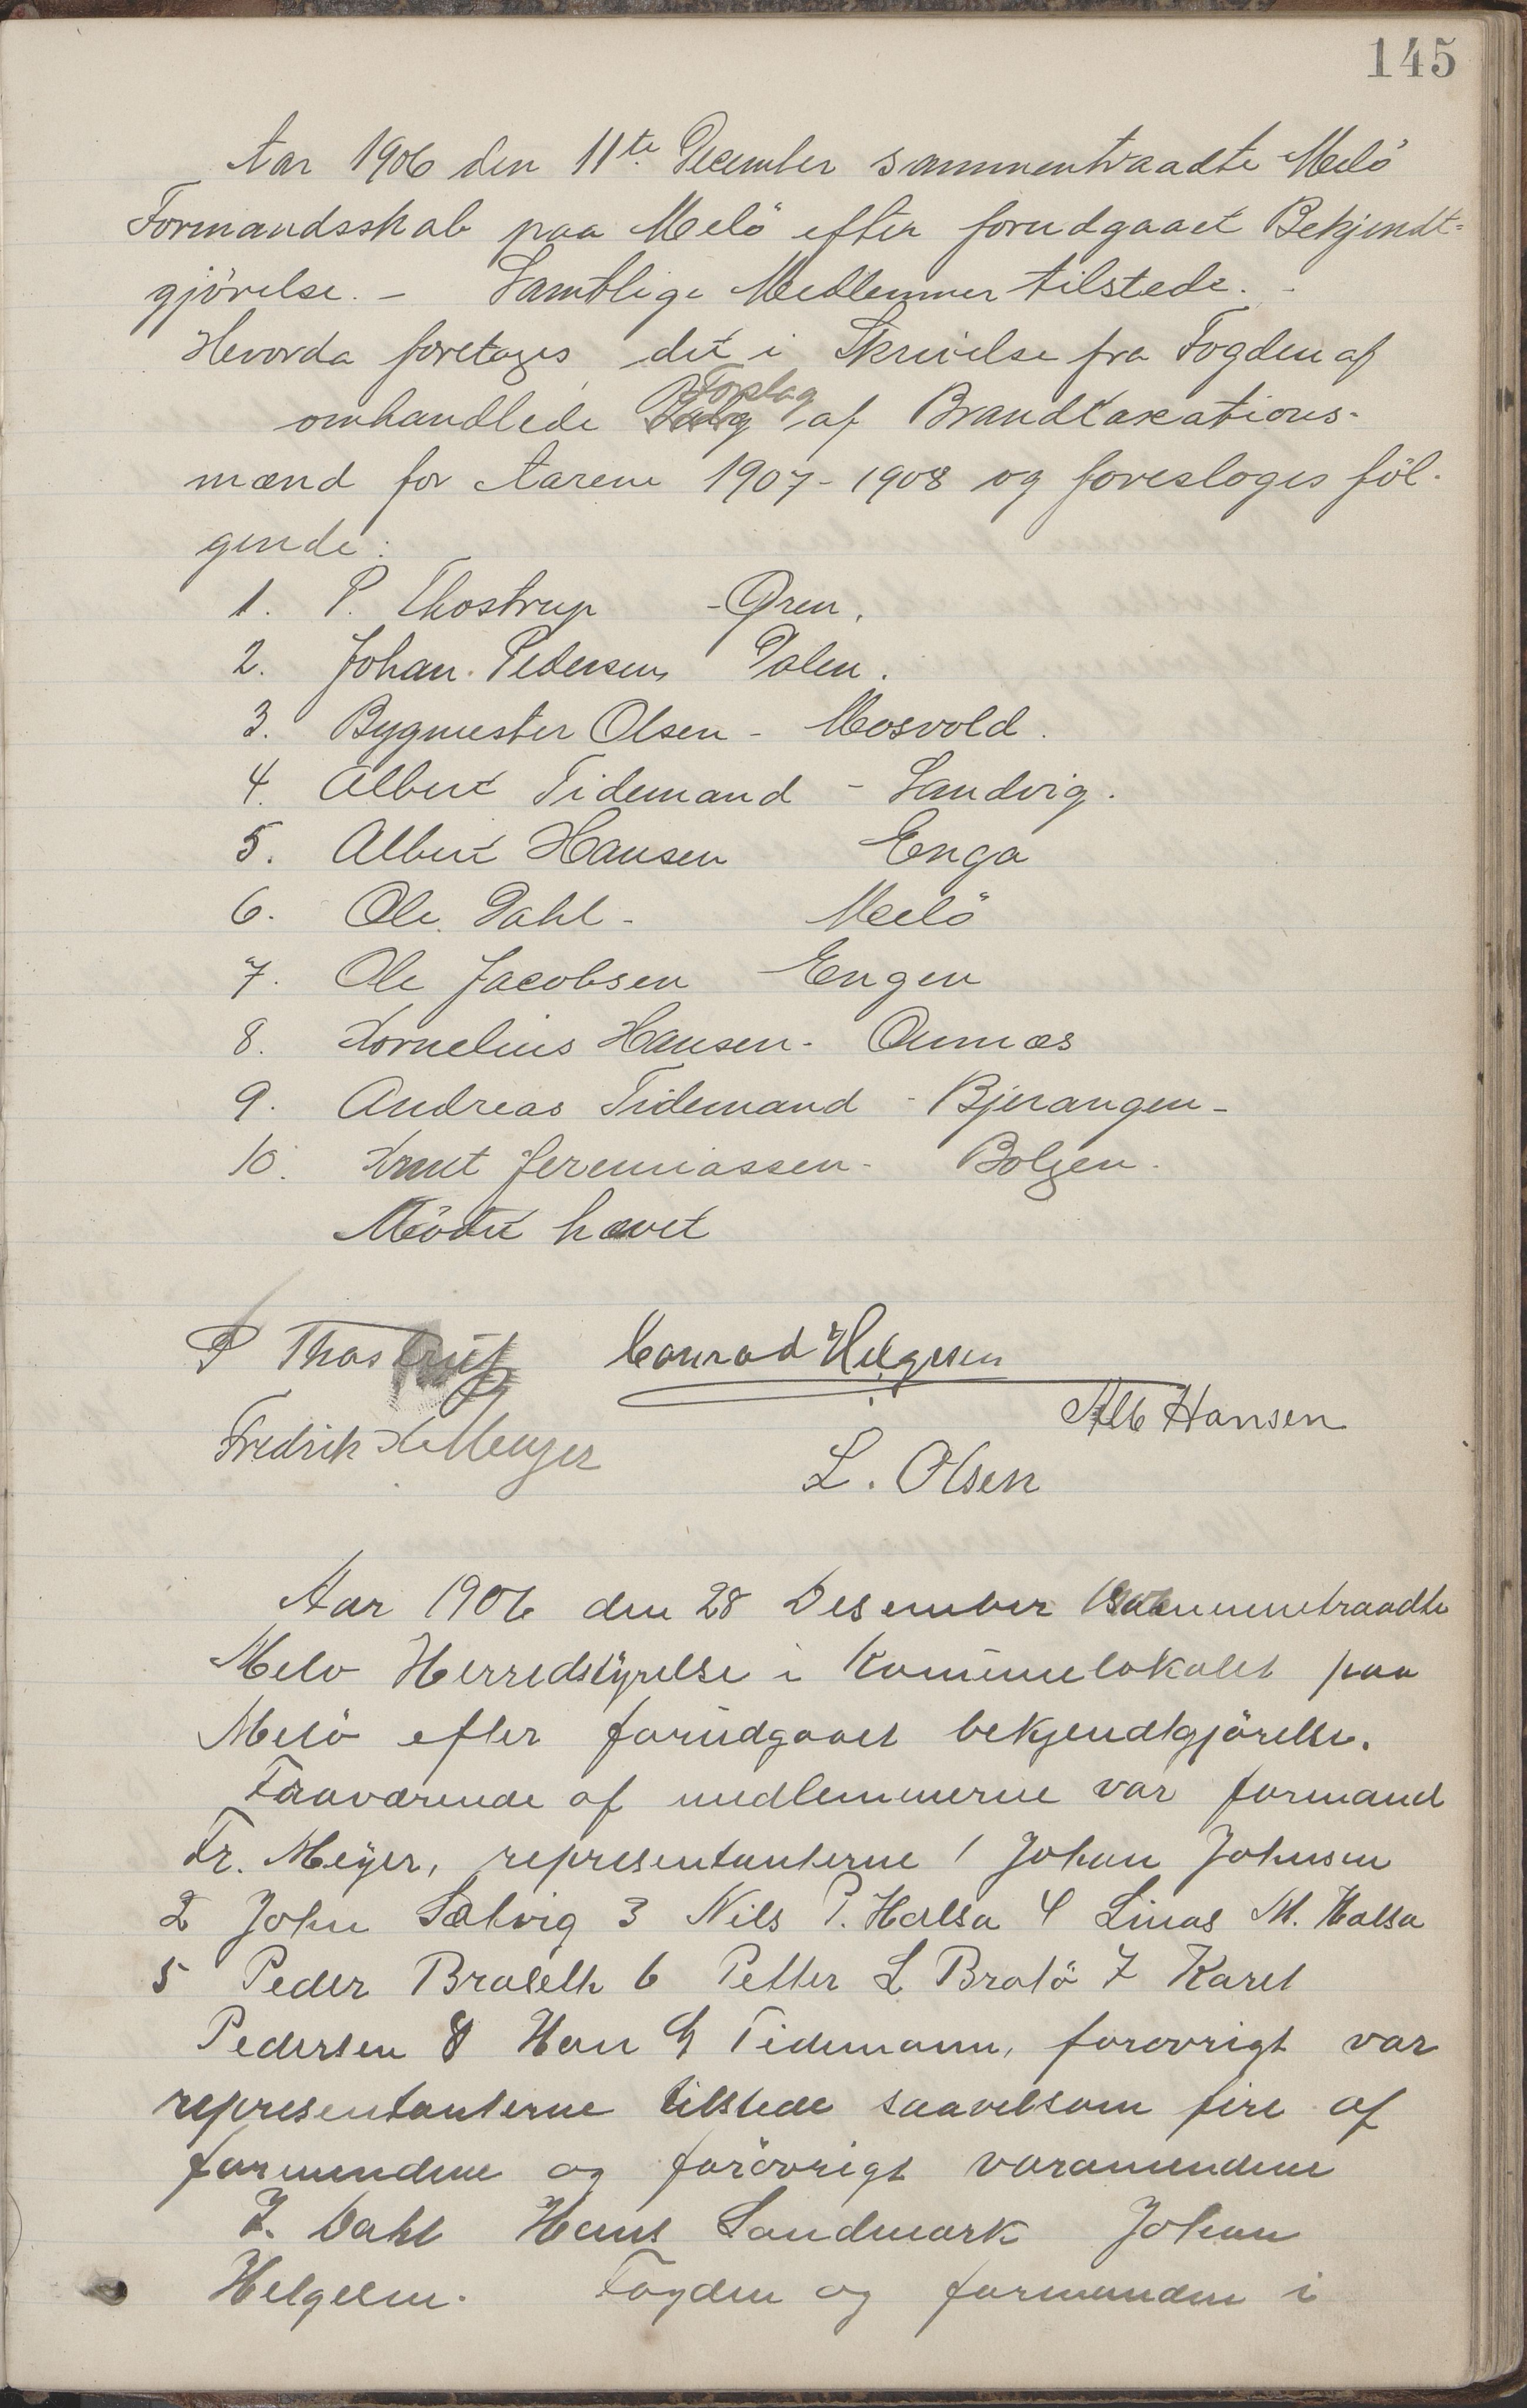 145
Aar 1906 den 11te December sammentraadte Melö
Formandsskab paa Melö efter forudgaaet Bekjendt-
gjörelse. - Samtlige Medlemmer tilstede. -
Hvorda foretages det i Skrivelse fra Fogden af
omhandlede Valg Forslag af Brandtaxations-
mænd for Aarene 1907-1908 og foresloges föl-
gende:
1. P. Thostrup - Øren.
2. Johan Pedersen Dalen.
3. Bygmester Olsen - Mosvold.
4. Albert Tidemand - Sandvig.
5. Albert Hansen Enga
6. Ole Dahl - Melö
7. Ole Jacobsen Engen
8. Kornelius Hansen - Ørnnæs
9. Andreas Tidemand - Bjerangen -
10. Knut Jeremiassen - Bolgen.
Mödet hævet
P Thostrup Conrad Helgesen
Alb Hansen
Fredrik Meyer
L. Olsen
Aar 1906 den 28 Desember sammentraadte
Melö Herredstyrelse i Kommunelokalet paa
Melö efter forudgaaet bekjendtgjörelse.
Fraværende af medlemmerne var formand
Fr. Meyer, representanterne 1 Johan Johnsen
2 John Selvig 3 Nils P. Halsa 4 Linas M. Halsa
5 Peder Braset 6 Petter L Bratö 7 Karel
Pedersen 8 Han G Tidemann, forovrigt var
representanterne tilstede saavelsom fire af
formendene og forövrigt varamendene
I. Dahl Hans Sandmark Johan
Helgesen. Fogden og formanden i